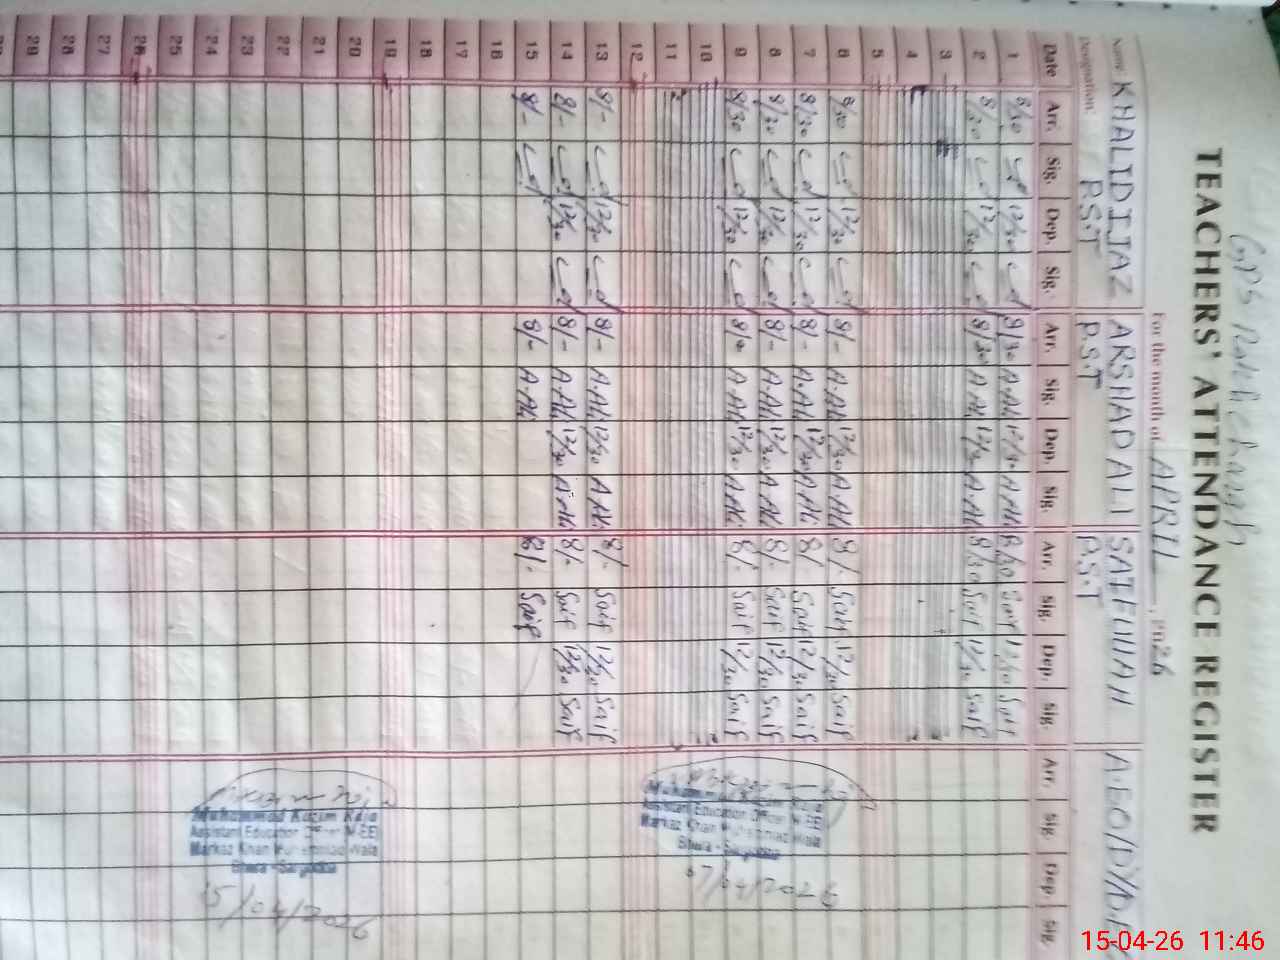 GPS
TEACHERS' ATTENDANCE REGISTER
For the month of APRIL, 2026
Name: KHALID IJAZ ARSHAD ALI SAIFULLAH
Designation: P.S.T P.S.T P.S.T
Date Arr. Sig. Dep. Sig. Arr. Sig. Dep. Sig. Arr. Sig. Dep. Sig. Arr. Sig. Dep. Sig.
1 8/30 12/30 8/30 A.Ali 12/30 A.Ali 8/30 Saif 12/30 Saif
2 8/30 12/30 8/30 A.Ali 12/30 A.Ali 8/30 Saif 12/30 Saif
3
4
5
6 8/30 12/30 8/- A.Ali 12/30 A.Ali 8/- Saif 12/30 Saif
7 8/30 12/30 8/- A.Ali 12/30 A.Ali 8/ Saif 12/30 Saif
8 8/30 12/30 8/- A.Ali 12/30 A.Ali 8/- Saif 12/30 Saif
9 8/30 12/30 8/- A.Ali 12/30 A.Ali 8/- Saif 12/30 Saif
10
11
12
13 8/- 12/30 8/- A.Ali 12/30 A.Ali 8/- Saif 12/30 Saif
14 8/- 12/30 8/- A.Ali 12/30 A.Ali 8/- Saif 12/30 Saif
15 8/- 8/- A.Ali 8/- Saif
16
17
18
19
20
21
22
23
24
25
26
27
28
29
Muhammad Kazim Raza
Assistant Education Officer M-EE
Markaz Khan Muhammad Wala
Bhera - Sargodha
Muhammad Kazim Raza
Assistant Education Officer M-EE
Markaz Khan Muhammad Wala
Bhera - Sargodha
15-04-26 11:46